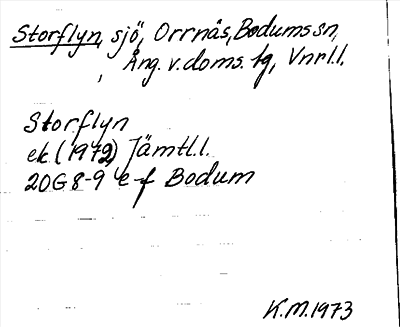 Storflyn, sjö, Orrnäs, Bodums sn,
Ång. v. doms. tg, Vnrl.l.
Storflyn
ek. (1972) Jämtl.l.
20G 8-9 e-f Bodum
K.M. 1973